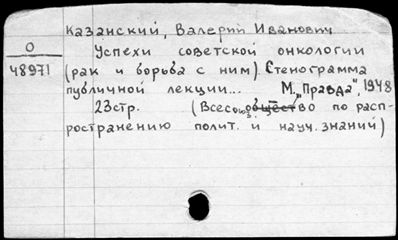 Казанский, Валерий Иванович
О
48971
Успехи советской онкологии
(рак и борьба с ним). Стенограмма
публичной лекции... М. „Правда", 1948
23стр. (Всесоюз. общество по расп-
ространению полит. и науч. знаний)